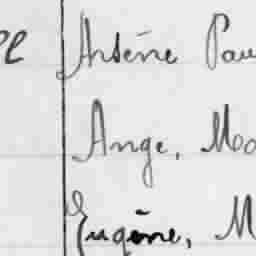 Arsène Pau
Ange, Mo
Eugène, M